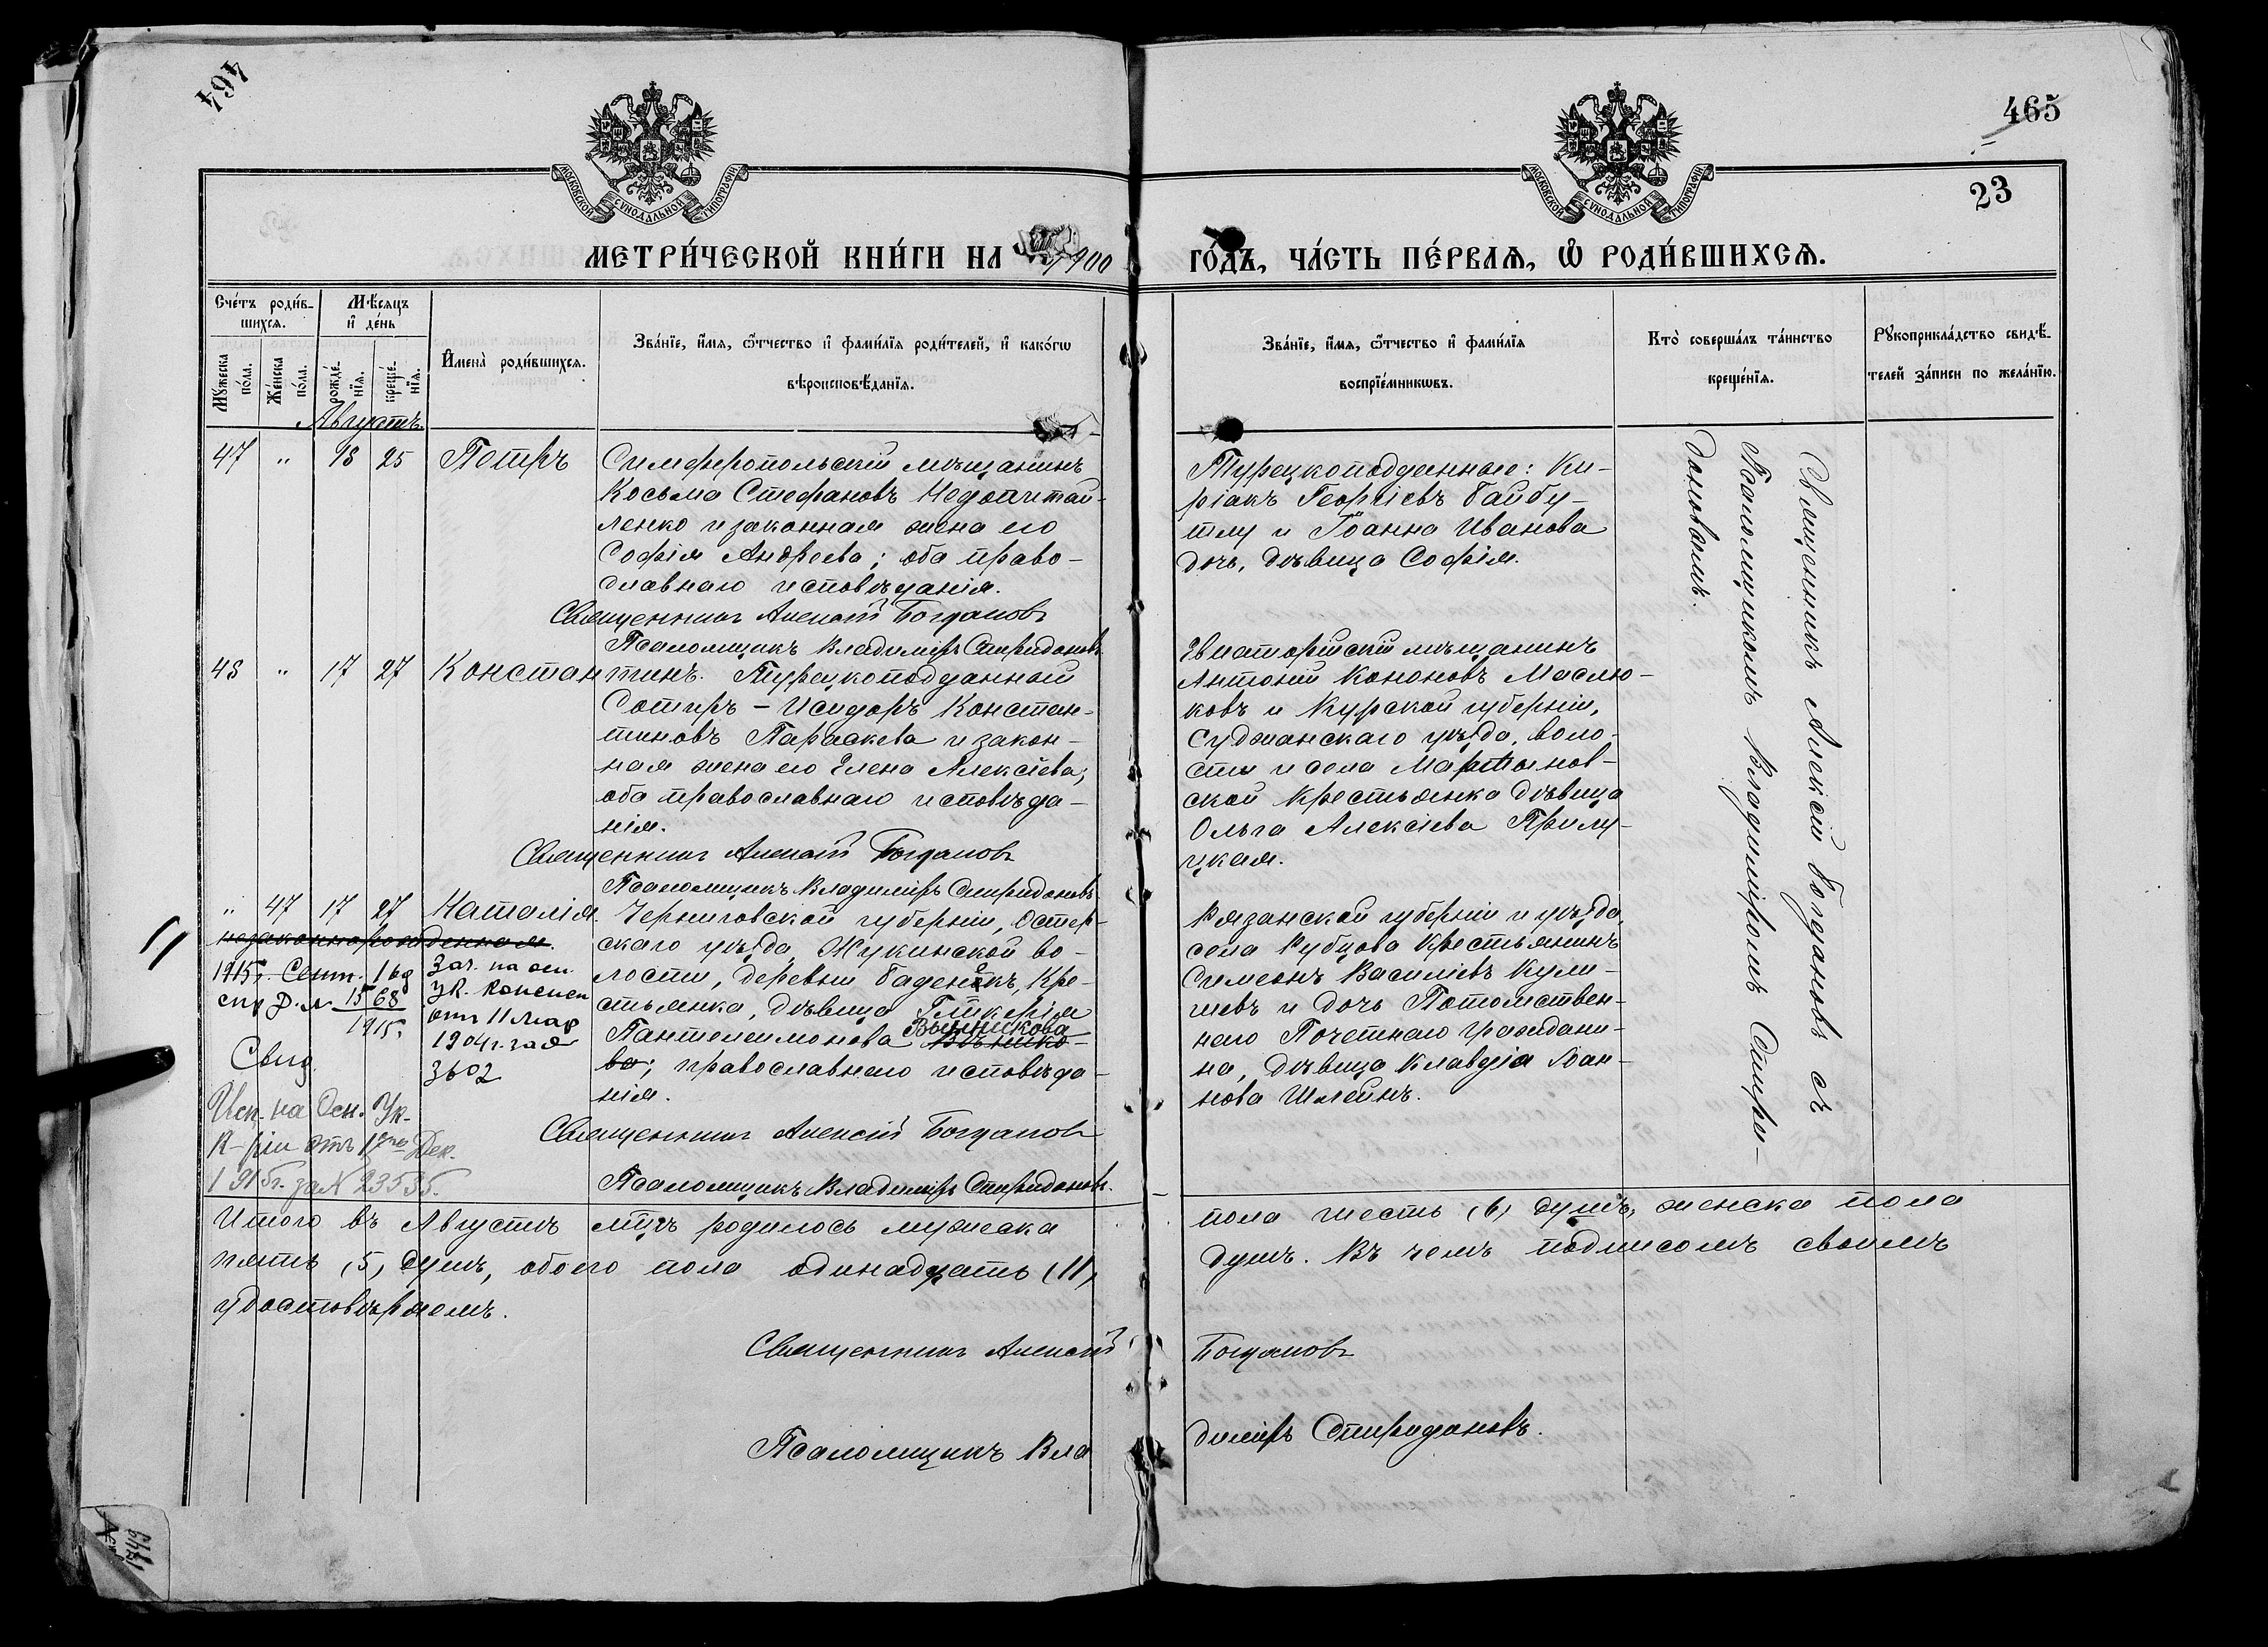 464
465
23
МОСКОВСКОЙ СѴНОДАЛЬНОЙ ТИПОГРАФІИ
МОСКОВСКОЙ СѴНОДАЛЬНОЙ ТИПОГРАФІИ
МЕТРИ́ЧЕСКОЙ КНИ́ГИ НА 1900
ГО́ДЪ, ЧА́СТЬ ПЕ́РВАѦ, Ѿ РОДИ́ВШИХСѦ.
Сче́тъ роди́в-
шихсѧ.
Мѣ́сяцъ
и҆ де́нь
Мꙋ́жеска по́ла.
Же́нска по́ла.
рожде́-
нїѧ.
креще́-
нїѧ.
И҆мена̀ роди́вшихсѧ.
Зва́нїе, и҆́мѧ, ѻ҆́тчество и҆ фами́лїѧ роди́телей, и҆ како́гѡ
вѣроисповѣ́данїѧ.
Зва́нїе, и҆́мѧ, ѻ҆́тчество и҆ фами́лїѧ
воспрїе́мникѡвъ.
Кто̀ соверша́лъ та́инство
креще́нїѧ.
Рꙋкоприкла́дство свидѣ́-
телей за́писи по жела́нїю.
Августъ.
47 " 18 25 Петръ
Симферопольскій мѣщанинъ
Косьма Стефановъ Недопитай-
ленко и законная жена его
Софія Андреева; оба право-
славнаго исповѣданія.
Священникъ Алексій Богдановъ
Псаломщикъ Владиміръ Спиридоновъ.
Турецкоподданные: Ки-
ріакъ Георгіевъ Байбу-
тлы и Іоанна Иванова
дочь, дѣвица Софія.
48 " 17 27 Константинъ. Турецкоподданный
Сотиръ - Исидоръ Констан-
тиновъ Параскева и закон-
ная жена его Елена Алексіева;
оба православнаго исповѣда-
нія.
Священникъ Алексій Богдановъ
Псаломщикъ Владиміръ Спиридоновъ.
Евпаторійскій мѣщанинъ
Антоній Кононовъ Маслю-
ковъ и Курской губерніи,
Суджанскаго уѣзда, воло-
сти и села Мартынов-
ской крестьянка дѣвица
Ольга Алексіева Прилу-
цкая.
" 47 17 27 Наталія.
незаконнорожденная.
1915 г. Сент. 16 д
Зач. на осн.
Ук. Консист
отъ 11 Мар
1904 г. за №
3602
15 68
1915
Свид.
Исп. на Осн. Ук.
К-ріи отъ 17го Дек.
1915 г. за № 23535.
Черниговской губерніи, Остер-
скаго уѣзда, Жукинской во-
лости, деревни Баденекъ, кре-
стьянка, дѣвица Гликерія
Пантелеимонова
ва; православнаго исповѣда-
нія.
Священникъ Алексій Богдановъ
Псаломщикъ Владиміръ Спиридоновъ.
Рязанской губерніи и уѣзда,
села Рубцова крестьянинъ
Симеонъ Василіевъ Кули-
шевъ и дочь Потомствен-
наго Почетнаго гражданина,
дѣвица Клавдія Іоан-
нова Шлейнъ.
Священникъ Алексій Богдановъ съ
Псаломщикомъ Владиміромъ Спири-
доновымъ.
Итого въ Августѣ мцѣ родилось мужеска
пола шесть (6) душъ, женска пола
пять (5) душъ, обоего пола одинадцать (11)
душъ. Въ чемъ подписомъ своимъ
удостовѣряемъ.
Священникъ Алексій Богдановъ
Псаломщикъ Владиміръ Спиридоновъ.